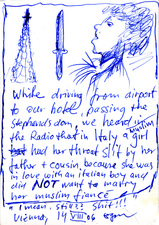 While driving from airport
to our hotel, passing the
stephansdom, we heard in
the Radio that in Italy a girl
muslim
had her throat slit by her
father + cousin, because she was
in love with an italian boy and
did NOT want to marry
her muslim fiance
I mean. still? Shit!!!
Vienna, 14 VIII 06